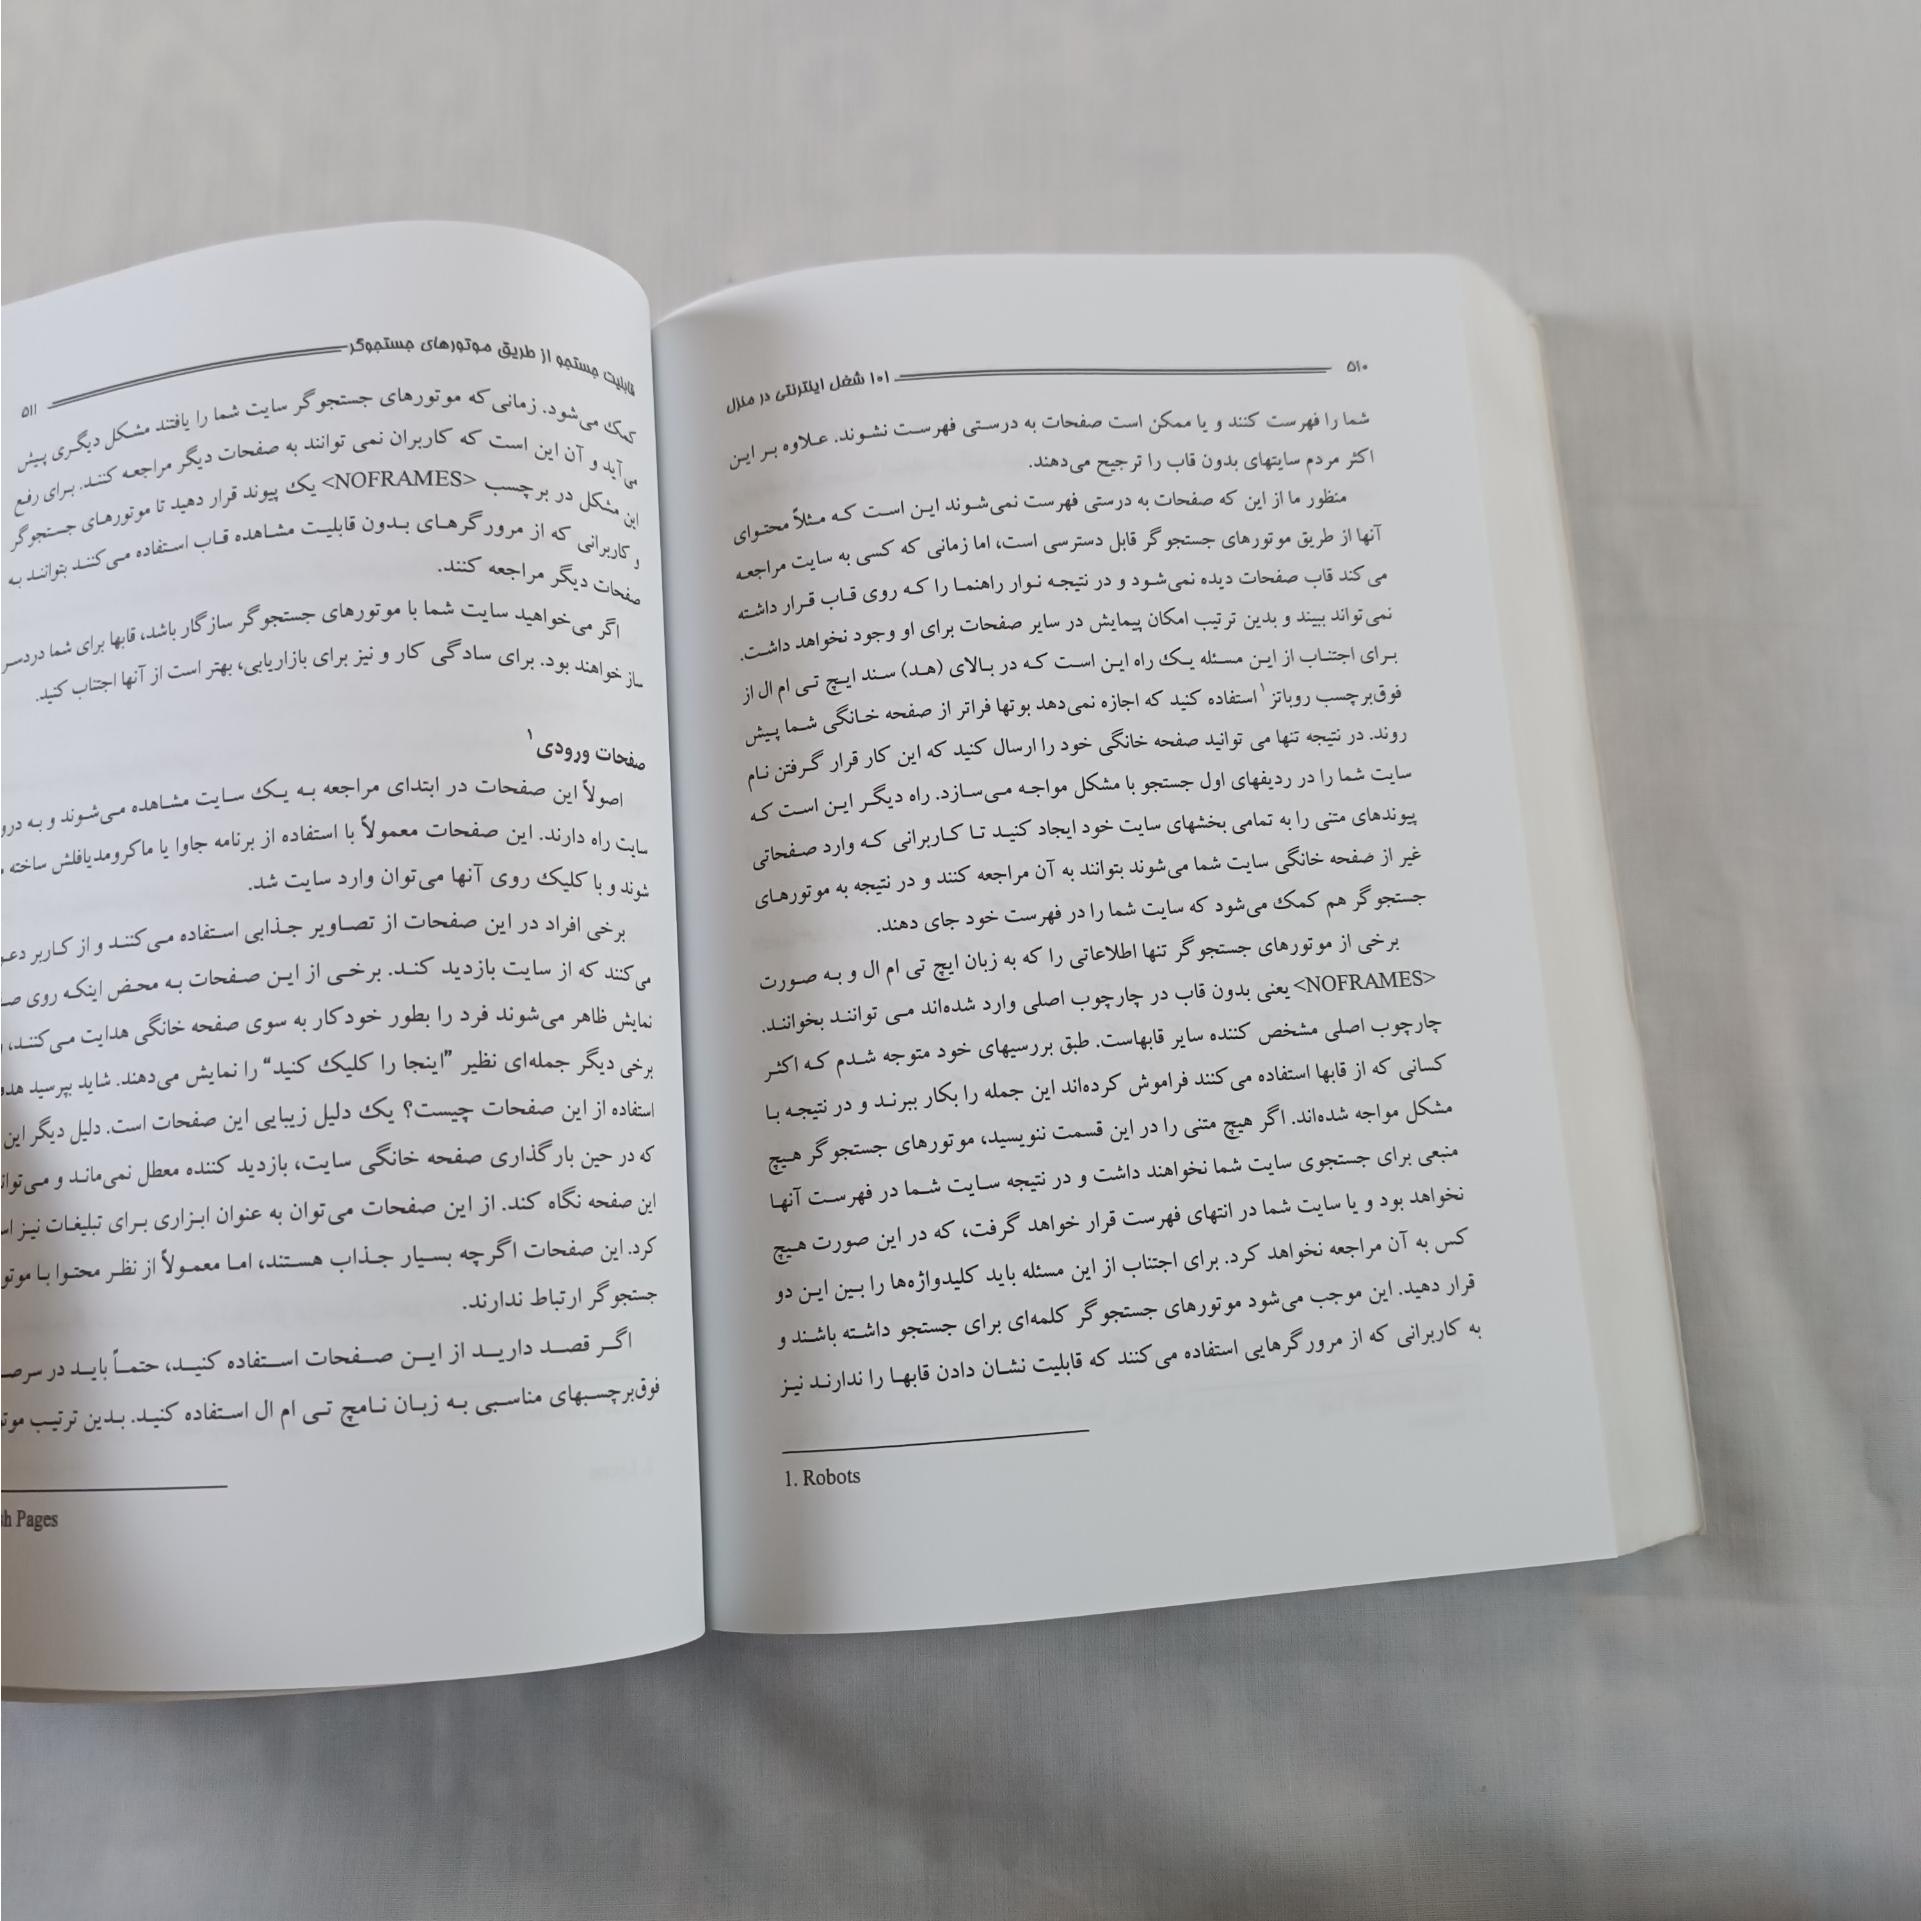 ۵۱۰ ۱۰۱ شغل اینترنتی در منزل
شما را فهرست کنند و یا ممکن است صفحات به درستی فهرست نشوند. علاوه بر این
اکثر مردم سایتهای بدون قاب را ترجیح می‌دهند.
منظور ما از این که صفحات به درستی فهرست نمی‌شوند این است که مثلاً محتوای
آنها از طریق موتورهای جستجو گر قابل دسترسی است، اما زمانی که کسی به سایت مراجعه
می کند قاب صفحات دیده نمی‌شود و در نتیجه نوار راهنما را که روی قاب قرار داشته
نمی‌تواند ببیند و بدین ترتیب امکان پیمایش در سایر صفحات برای او وجود نخواهد داشت.
برای اجتناب از این مسئله یک راه این است که در بالای (هد) سند ایچ تی ام ال از
فوق‌برچسب روباتز۱ استفاده کنید که اجازه نمی‌دهد بوتها فراتر از صفحه خانگی شما پیش
روند. در نتیجه تنها می توانید صفحه خانگی خود را ارسال کنید که این کار قرار گرفتن نام
سایت شما را در ردیفهای اول جستجو با مشکل مواجه می‌سازد. راه دیگر این است که
پیوندهای متنی را به تمامی بخشهای سایت خود ایجاد کنید تا کاربرانی که وارد صفحاتی
غیر از صفحه خانگی سایت شما می‌شوند بتوانند به آن مراجعه کنند و در نتیجه به موتورهای
جستجو گر هم کمک می‌شود که سایت شما را در فهرست خود جای دهند.
برخی از موتورهای جستجو گر تنها اطلاعاتی را که به زبان ایچ تی ام ال و به صورت
<NOFRAMES> یعنی بدون قاب در چارچوب اصلی وارد شده‌اند می توانند بخوانند.
چارچوب اصلی مشخص کننده سایر قابهاست. طبق بررسیهای خود متوجه شدم که اکثر
کسانی که از قابها استفاده می‌کنند فراموش کرده‌اند این جمله را بکار ببرند و در نتیجه با
مشکل مواجه شده‌اند. اگر هیچ متنی را در این قسمت ننویسید، موتورهای جستجو گر هیچ
منبعی برای جستجوی سایت شما نخواهند داشت و در نتیجه سایت شما در فهرست آنها
نخواهد بود و یا سایت شما در انتهای فهرست قرار خواهد گرفت، که در این صورت هیچ
کس به آن مراجعه نخواهد کرد. برای اجتناب از این مسئله باید کلیدواژه‌ها را بین این دو
قرار دهید. این موجب می‌شود موتورهای جستجو گر کلمه‌ای برای جستجو داشته باشند و
به کاربرانی که از مرورگرهایی استفاده می‌کنند که قابلیت نشان دادن قابها را ندارند نیز
1. Robots
قابلیت جستجو از طریق موتورهای جستجوگر ۵۱۱
کمک می‌شود. زمانی که موتورهای جستجو گر سایت شما را یافتند مشکل دیگری پیش
می‌آید و آن این است که کاربران نمی توانند به صفحات دیگر مراجعه کنند. برای رفع
این مشکل در برچسب <NOFRAMES> یک پیوند قرار دهید تا موتورهای جستجوگر
و کاربرانی که از مرورگرهای بدون قابلیت مشاهده قاب استفاده می‌کنند بتوانند به
صفحات دیگر مراجعه کنند.
اگر می‌خواهید سایت شما با موتورهای جستجو گر سازگار باشد، قابها برای شما دردسر
ساز خواهند بود. برای سادگی کار و نیز برای بازاریابی، بهتر است از آنها اجتناب کنید.
صفحات ورودی۱
اصولاً این صفحات در ابتدای مراجعه به یک سایت مشاهده می‌شوند و به
سایت راه دارند. این صفحات معمولاً با استفاده از برنامه جاوا یا ماکرومدیافلش ساخته
شوند و با کلیک روی آنها می‌توان وارد سایت شد.
برخی افراد در این صفحات از تصاویر جذابی استفاده می‌کنند و از کاربر
می‌کنند که از سایت بازدید کند. برخی از این صفحات به محض اینکه روی
نمایش ظاهر می‌شوند فرد را بطور خودکار به سوی صفحه خانگی هدایت می‌کنند،
برخی دیگر جمله‌ای نظیر "اینجا را کلیک کنید" را نمایش می‌دهند. شاید بپرسید
استفاده از این صفحات چیست؟ یک دلیل زیبایی این صفحات است. دلیل دیگر این
که در حین بارگذاری صفحه خانگی سایت، بازدید کننده معطل نمی‌ماند و
این صفحه نگاه کند. از این صفحات می‌توان به عنوان ابزاری برای تبلیغات نیز
کرد. این صفحات اگرچه بسیار جذاب هستند، اما معمولاً از نظر محتوا با
جستجو گر ارتباط ندارند.
اگر قصد دارید از این صفحات استفاده کنید، حتماً باید در
فوق‌برچسبهای مناسبی به زبان نامچ تی ام ال استفاده کنید. بدین ترتیب
Pages